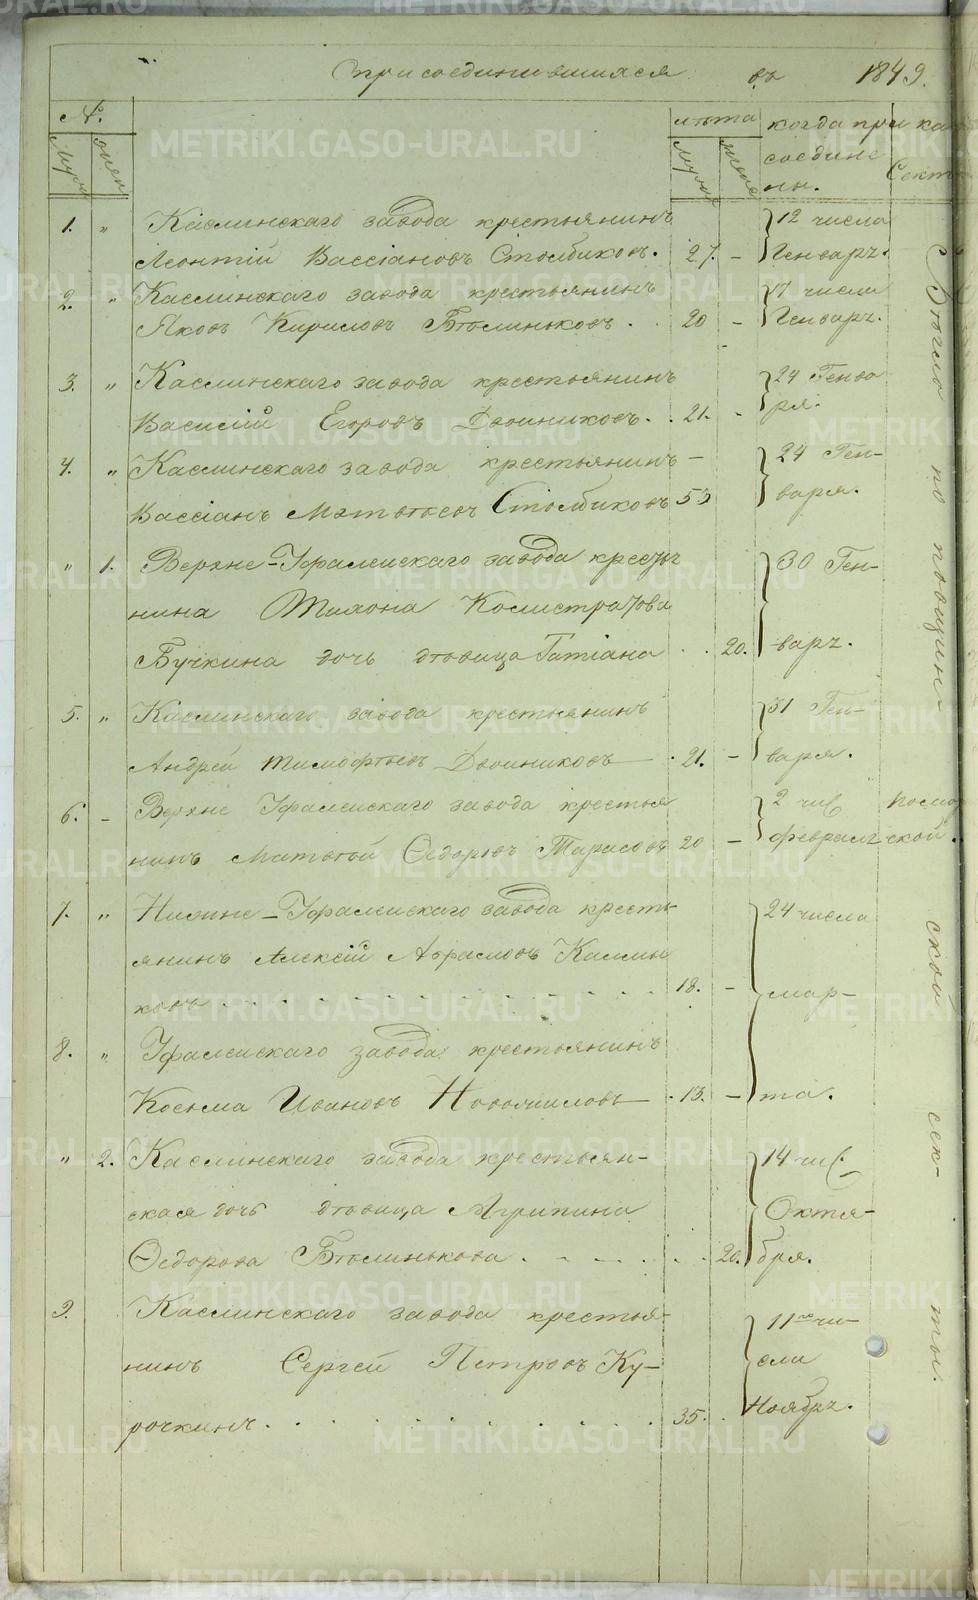 Присоединившияся въ 1849.
№.
муж
жен
лѣта
муж
жен
когда при
соедине
ны.
Сект
1. „ Каслинскаго завода крестьянинъ
Леонтій Вассіановъ Столбиковъ. 27. –
12 числа
Генваря.
2. „ Каслинскаго завода крестьянинъ
Яковъ Кириловъ Бѣлиньковъ. 20 –
17 числа
Генваря.
3. „ Каслинскаго завода крестьянинъ
Василій Егоровъ Двойниковъ. 21. –
24 Генва
ря.
4. „ Каслинскаго завода крестьянинъ –
Вассіанъ Матвѣевъ Столбиковъ 53
24 Ген-
варя.
„ 1. Верхне-Уфалейскаго завода кресть
нина Тихона Калистратова
Бучкина дочь дѣвица Татіана . . 20.
30 Ген-
варя.
5. „ Каслинскаго завода крестьянинъ
Андрей Тимофѣевъ Двойниковъ . 21. –
31 Ген-
варя.
6. – Верхне Уфалейскаго завода крестья
нинъ Матвѣй Ѳедоровъ Тарасовъ 20 –
2 чис
февраля
Помор
ской.
7. „ Нижне-Уфалейскаго завода кресть
янинъ Алексій Абрамовъ Калин
ковъ . . . 18. –
24 числа
мар-
та.
8. „ Уфалейскаго завода крестьянинъ
Косьма Ивановъ Новомиловъ . 13. –
„ 2. Каслинскаго завода крестьян-
ская дочь дѣвица Агрипина
Ѳедорова Бѣлинькова . . . 20.
14 чис.
Октя-
бря.
9. Каслинскаго завода крестья-
нинъ Сергей Петровъ Ку-
рочкинъ. . . . 35. .
11го чи-
сла
Ноября.
по повицин-
ской сек-
ты.
METRIKI.GASO-URAL.RU